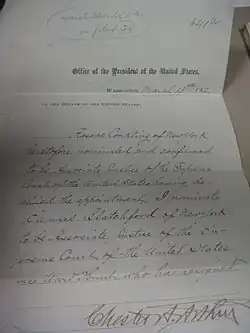 Office of the President of the United States.
Washington, March 13th 1882
To the Senate of the United States.
Roscoe Conkling of New York
heretofore nominated and confirmed
to be Associate Justice of the Supreme
Court of the United States having de
clined the appointment, I nominate
Samuel Blatchford of New York
to be Associate Justice of the Su
preme Court of the United States
vice Ward Hunt who has resigned
Chester A. Arthur